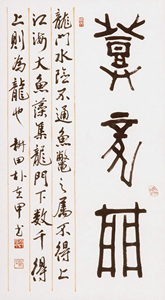 登龍門
龍門水險不通魚鼈之屬不得上
江海大魚薄集龍門下數千得
上則為龍也 田朴甲書